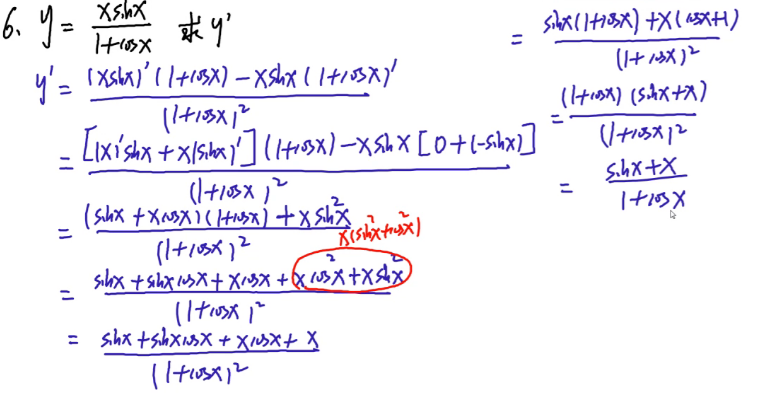 6、y = \frac{x\sin x}{1+\cos x} 求 y'
y' = \frac{(x\sin x)'(1+\cos x) - x\sin x(1+\cos x)'}{(1+\cos x)^2}
= \frac{[(x)'\sin x + x(\sin x)'](1+\cos x) - x\sin x[0+(-\sin x)]}{(1+\cos x)^2}
= \frac{(\sin x + x\cos x)(1+\cos x) + x\sin^2 x}{(1+\cos x)^2}
x(\sin^2 x + \cos^2 x)
= \frac{\sin x + \sin x\cos x + x\cos x + x\cos^2 x + x\sin^2 x}{(1+\cos x)^2}
= \frac{\sin x + \sin x\cos x + x\cos x + x}{(1+\cos x)^2}
= \frac{\sin x(1+\cos x) + x(\cos x+1)}{(1+\cos x)^2}
= \frac{(1+\cos x)(\sin x + x)}{(1+\cos x)^2}
= \frac{\sin x + x}{1+\cos x}